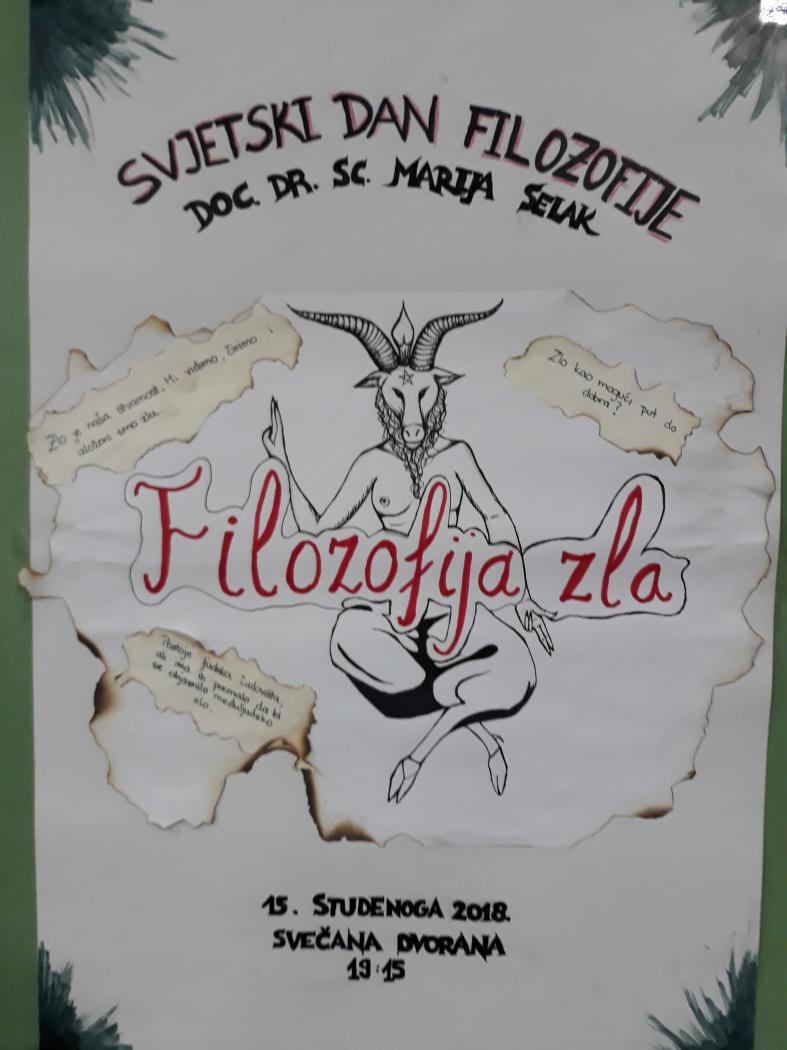 SVJETSKI DAN FILOZOFIJE
DOC. DR. SC. MARIJA SELAK
Zlo je naša stvarnost. Mi vidimo, činimo i
izloženi smo zlu.
Zlo kao mogući put do
dobra?
Filozofija zla
Postoje ljudska čudovišta,
ali ima ih premalo da bi
se objasnilo međuljudsko
zlo.
15. STUDENOGA 2018.
SVEČANA DVORANA
19:15